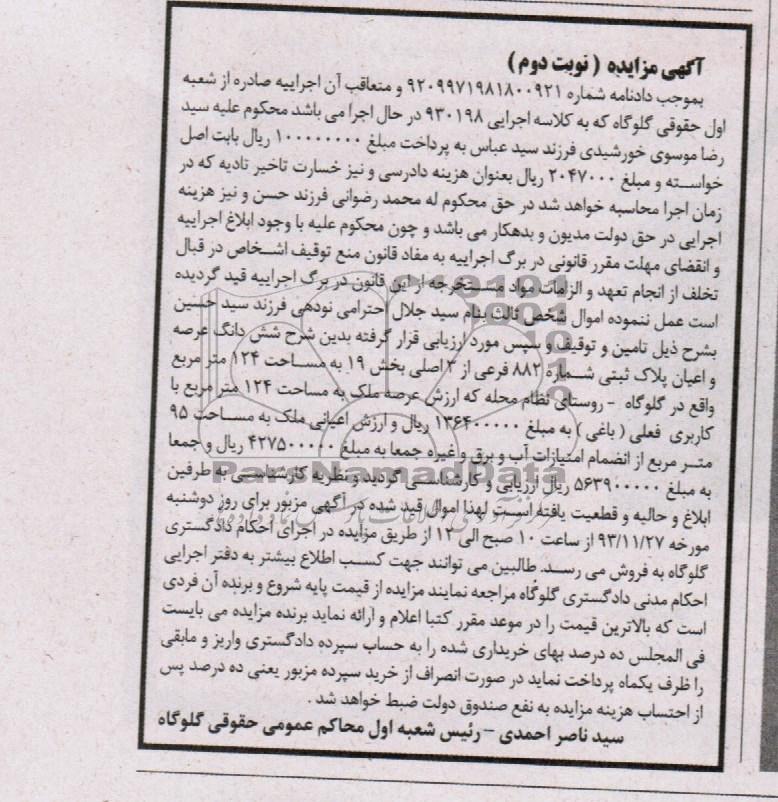 آگهی مزایده (نوبت دوم)
بموجب دادنامه شماره ۹۲۰۹۹۷۱۹۸۱۸۰۰۹۲۱ و متعاقب آن اجراییه صادره از شعبه
اول حقوقی گلوگاه که به کلاسه اجرایی ۹۳۰۱۹۸ در حال اجرا می باشد محکوم علیه سید
رضا موسوی خورشیدی فرزند سید عباس به پرداخت مبلغ ۱۰۰۰۰۰۰۰۰ ریال بابت اصل
خواسته و مبلغ ۲۰۴۷۰۰۰ ریال بعنوان هزینه دادرسی و نیز خسارت تاخیر تادیه که در
زمان اجرا محاسبه خواهد شد در حق محکوم له محمد رضوانی فرزند حسن و نیز هزینه
اجرایی در حق دولت مدیون و بدهکار می باشد و چون محکوم علیه با وجود ابلاغ اجراییه
و انقضای مهلت مقرر قانونی در برگ اجراییه به مفاد قانون منع توقیف اشخاص در قبال
تخلف از انجام تعهد و الزامات مواد مستخرجه از این قانون در برگ اجراییه قید گردیده
است عمل ننموده اموال شخص ثالث بنام سید جلال احترامی نودهی فرزند سید حسین
بشرح ذیل تامین و توقیف و سپس مورد ارزیابی قرار گرفته بدین شرح شش دانگ عرصه
و اعیان پلاک ثبتی شماره ۸۸۲ فرعی از ۳ اصلی بخش ۱۹ به مساحت ۱۲۴ متر مربع
واقع در گلوگاه - روستای نظام محله که ارزش عرصه ملک به مساحت ۱۲۴ متر مربع با
کاربری فعلی (باغی) به مبلغ ۱۳۶۴۰۰۰۰۰ ریال و ارزش اعیانی ملک به مساحت ۹۵
متر مربع از انضمام امتیازات آب و برق و غیره جمعا به مبلغ ۴۲۷۵۰۰۰۰۰ ریال و جمعا
به مبلغ ۵۶۳۹۰۰۰۰۰ ریال ارزیابی و کارشناسی گردید و نظریه کارشناسی به طرفین
ابلاغ و حالیه و قطعیت یافته است لهذا اموال قید شده در آگهی مزبور برای روز دوشنبه
مورخه ۹۳/۱۱/۲۷ از ساعت ۱۰ صبح الی ۱۲ از طریق مزایده در اجرای احکام دادگستری
گلوگاه به فروش می رسد. طالبین می توانند جهت کسب اطلاع بیشتر به دفتر اجرایی
احکام مدنی دادگستری گلوگاه مراجعه نمایند مزایده از قیمت پایه شروع و برنده آن فردی
است که بالاترین قیمت را در موعد مقرر کتبا اعلام و ارائه نماید برنده مزایده می بایست
فی المجلس ده درصد بهای خریداری شده را به حساب سپرده دادگستری واریز و مابقی
را ظرف یکماه پرداخت نماید در صورت انصراف از خرید سپرده مزبور یعنی ده درصد پس
از احتساب هزینه مزایده به نفع صندوق دولت ضبط خواهد شد .
سید ناصر احمدی - رئیس شعبه اول محاکم عمومی حقوقی گلوگاه
ParsNamadData